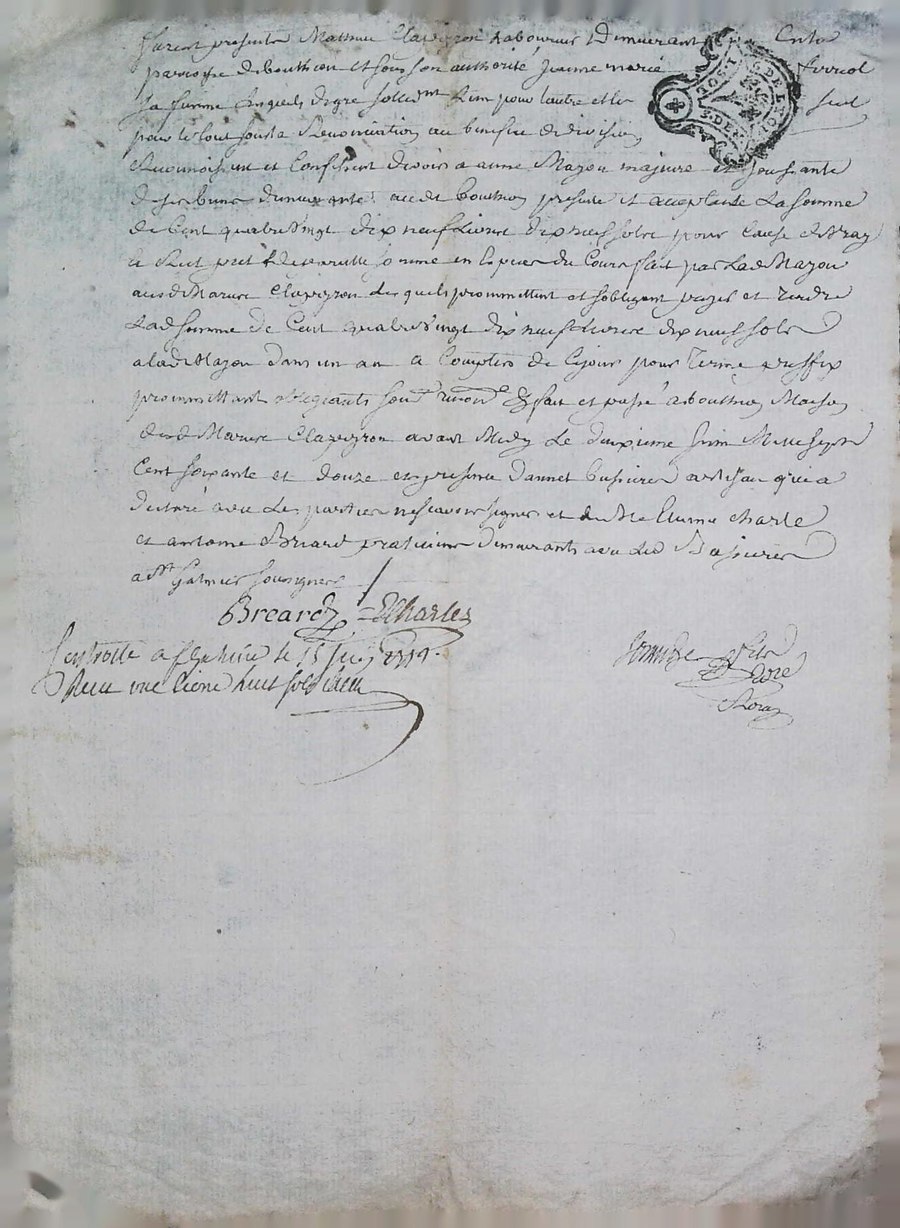 furent presents Mathieu Clapeyron Laboureur Demeurant en la
paroisse de bouthion et sous son authorité Jeanne marie ferriol
sa femme lesquels de gre sollidt Lun pour lautre et seul
pour le tout sous la Renonciation au benefice de division
Reconnoissent et Confessent devoir a anne Mazou majeure et jouissante
de ses biens demeurante aud bouthion presente et acceptante La somme
de Cent quatre vingt dix neuf Livres dix neuf sols pour Cause de vray
et pret de semblable somme en Especes du Cours fait par Lad Mazou
aud Clapeyron Lesquels promettent et sobligent payer et rendre
Lad somme de Cent quatre vingt dix neuf Livres dix neuf sols
a lad Mazou dans un an a Compter de Cejour pour Terme preffix
promettant obligeants fait et passé a bouthion Maison
dud Clapeyron avant Midy Le deuxieme Juin Mille sept
Cent soixante et douze en presence dannet artisan qui a
declaré avec Les parties ne scavoir signer et de Me Etienne Charle
et antoine Breard praticiens demeurants avec Led
a St Galmier soussignes
Breard Charles
Controllé a St Galmier le 15 Juin
Recu une livre huit sols